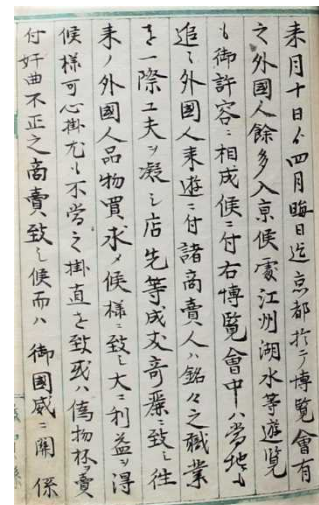 来月十日ゟ四月晦日迄京都於テ博覧會有
之外國人餘多入京候處江州湖水等遊覧
も御許容ニ相成候ニ付右博覧會中ハ當地も
追々外國人来遊ニ付諸商賣人ハ銘々之職業
を一際工夫ヲ凝シ店先等成丈奇麗ニ致シ往
来ノ外國人品物買求メ候様ニ致シ大ニ利益ヲ得
候様可心掛尤も不當之掛直を致或ハ偽物杯賣
付奸曲不正之商賣致シ候而ハ 御國威ニ関係